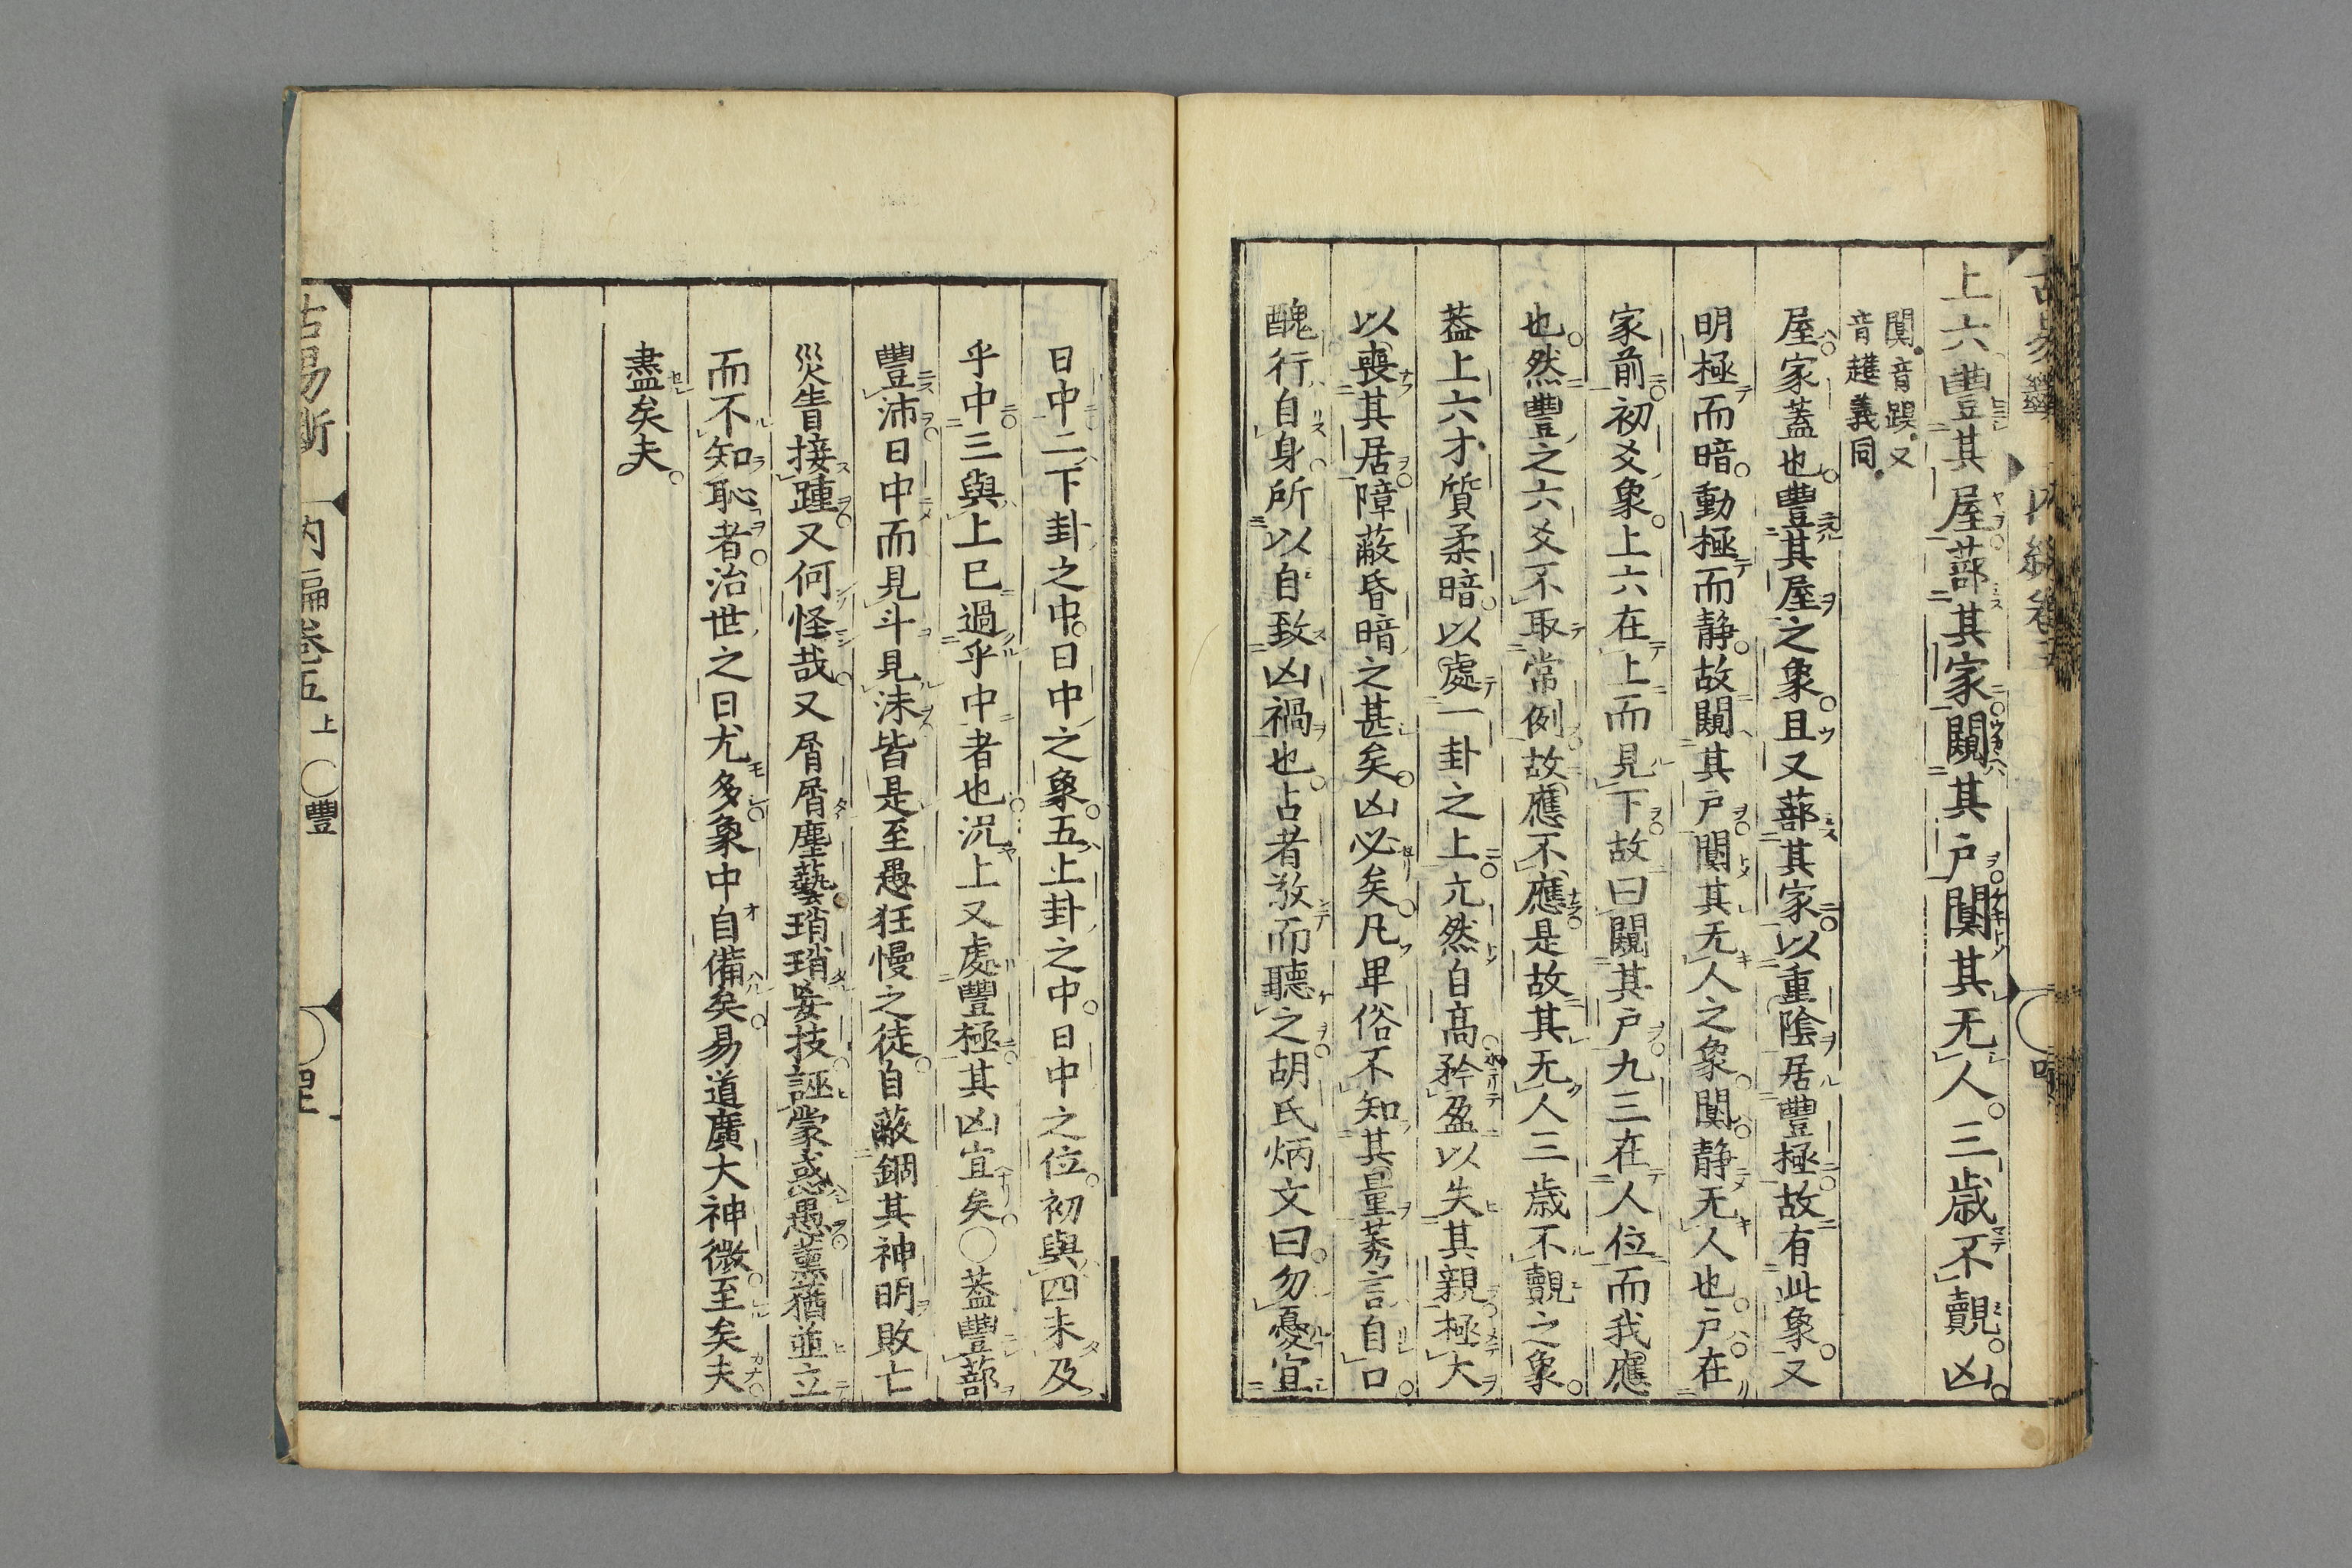 上六豐其屋蔀其家闚其戸闃其无人三歳不覿凶
闃音踧又
音趗義同
屋家蓋也豐其屋之象且又蔀其家以重陰居豐極故有此象又
明極而暗動極而静故闚其戸闃其无人之象闃静无人也戸在
家前初爻象上六在上而見下故曰闚其戸九三在人位而我應
也然豐之六爻不取常例故應不應是故其无人三歳不覿之象
葢上六才質柔暗以處一卦之上亢然自高矜盈以失其親極大
以喪其居障蔽昏暗之甚矣凶必矣凡卑俗不知其量莠言自口
醜行自身所以自致凶禍也占者敬而聽之胡氏炳文曰勿憂宜
日中二下卦之中日中之象五上卦之中日中之位初與四未及
乎中三與上已過乎中者也況上又處豐極其凶宜矣○葢豐蔀
豐沛日中而見斗見沬皆是至愚狂慢之徒自蔽錮其神明敗亡
災眚接踵又何怪哉又屑屑塵藝瑣瑣妄技誣蒙惑愚薰蕕並立
而不知恥者治世之日尤多象中自備矣易道廣大神微至矣夫
盡矣夫
古易斷 内編卷五上 ○豐